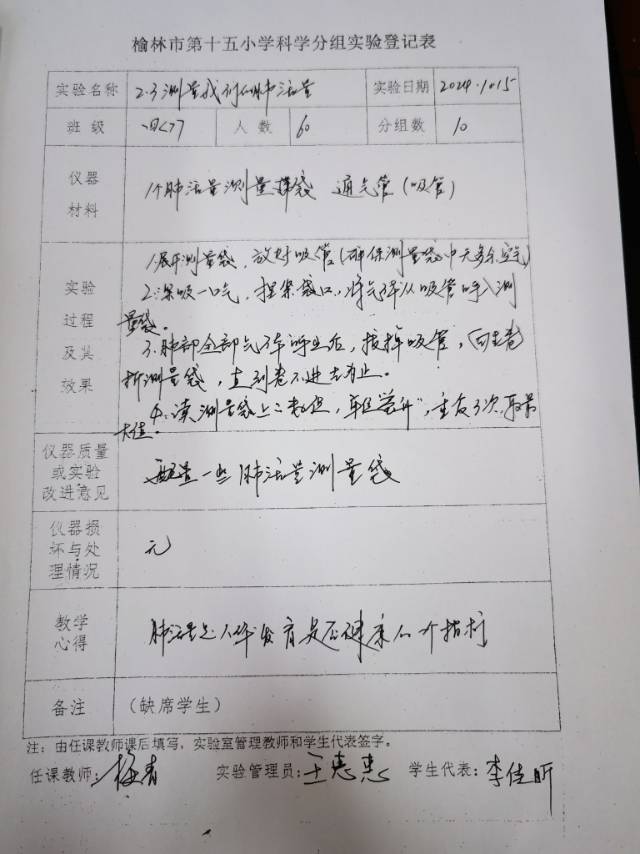 榆林市第十五小学科学分组实验登记表
实验名称 2.3测量我们的肺活量 实验日期 2024.10.15
班级 四<7> 人数 60 分组数 10
仪器材料 1个肺活量测量袋 通气管(吸管)
实验过程及其效果 1.展开测量袋,放好吸管(确保测量袋中无多余空气)
2.深吸一口气,捏紧袋口,将气体从吸管呼入测
量袋。
3.肺部全部气体呼出后,拔掉吸管,
折测量袋,直到卷不进去为止。
4.读测量袋上的数值,单位"毫升",重复3次,取最
大值。
仪器质量或实验改进意见 配置一些肺活量测量袋
仪器损坏与处理情况 无
教学心得 肺活量是人体发育是否健康的一个指标
备注 (缺席学生)
注:由任课教师课后填写,实验室管理教师和学生代表签字。
任课教师: 实验管理员:王惠惠 学生代表:李佳昕